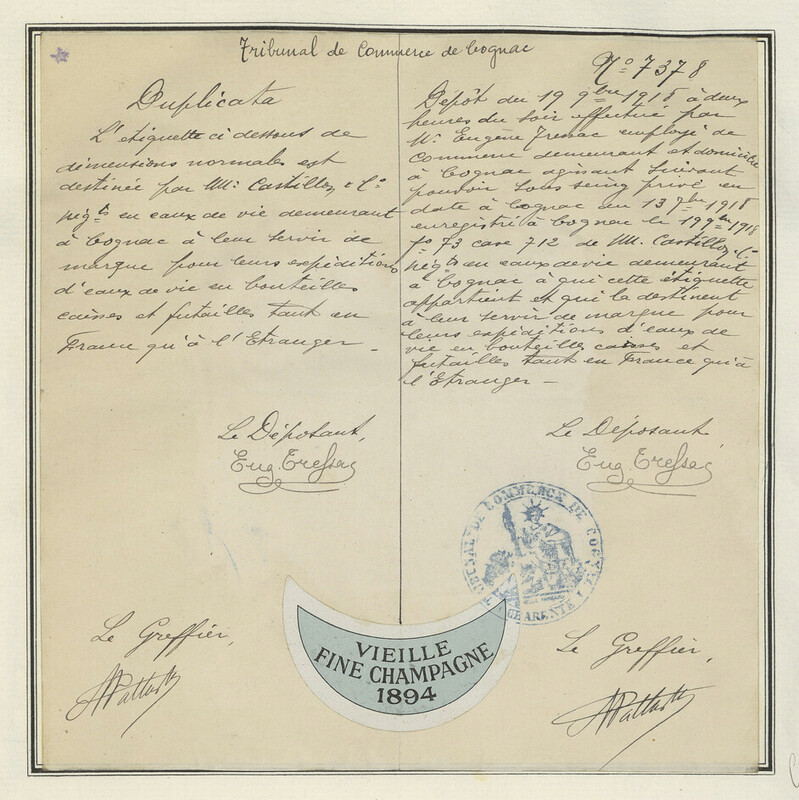 Tribunal de Commerce de Cognac
Duplicata
L'étiquette ci dessous de
dimensions normales est
destinée par MM. Castillon & Cº
négts en eaux de vie demeurant
à Cognac à leur servir de
marque pour leurs expéditions
d'eaux de vie en bouteilles
caisses et futailles tant en
France qu'à l'Etranger _
Le Déposant,
Eug. Tressac
Le Greffier,
Nº 7378
Dépôt du 19 9bre 1918 à deux
heures du soir effectué par
Mr. Eugène Tressac employé de
Commerce demeurant et domicilié
à Cognac agissant suivant
pouvoir sous seing privé en
date à Cognac du 13 7bre 1918
enregistré à Cognac le 19 9bre 1918
fº 73 case 712 de MM. Castillon & Cº
négts en eaux de vie demeurant
à Cognac à qui cette étiquette
appartient et qui la destinent
à leur servir de marque pour
leurs expéditions d'eaux de
vie en bouteilles caisses et
futailles tant en France qu'à
l'Etranger _
Le Déposant
Eug Tressac
TRIBUNAL DE COMMERCE DE COGNAC
CHARENTE
Le Greffier,
VIEILLE
FINE CHAMPAGNE
1894